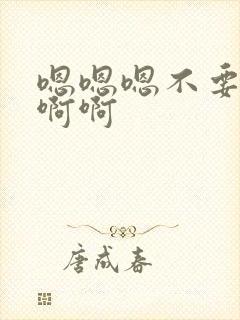 嗯嗯嗯不要
啊啊
唐成春